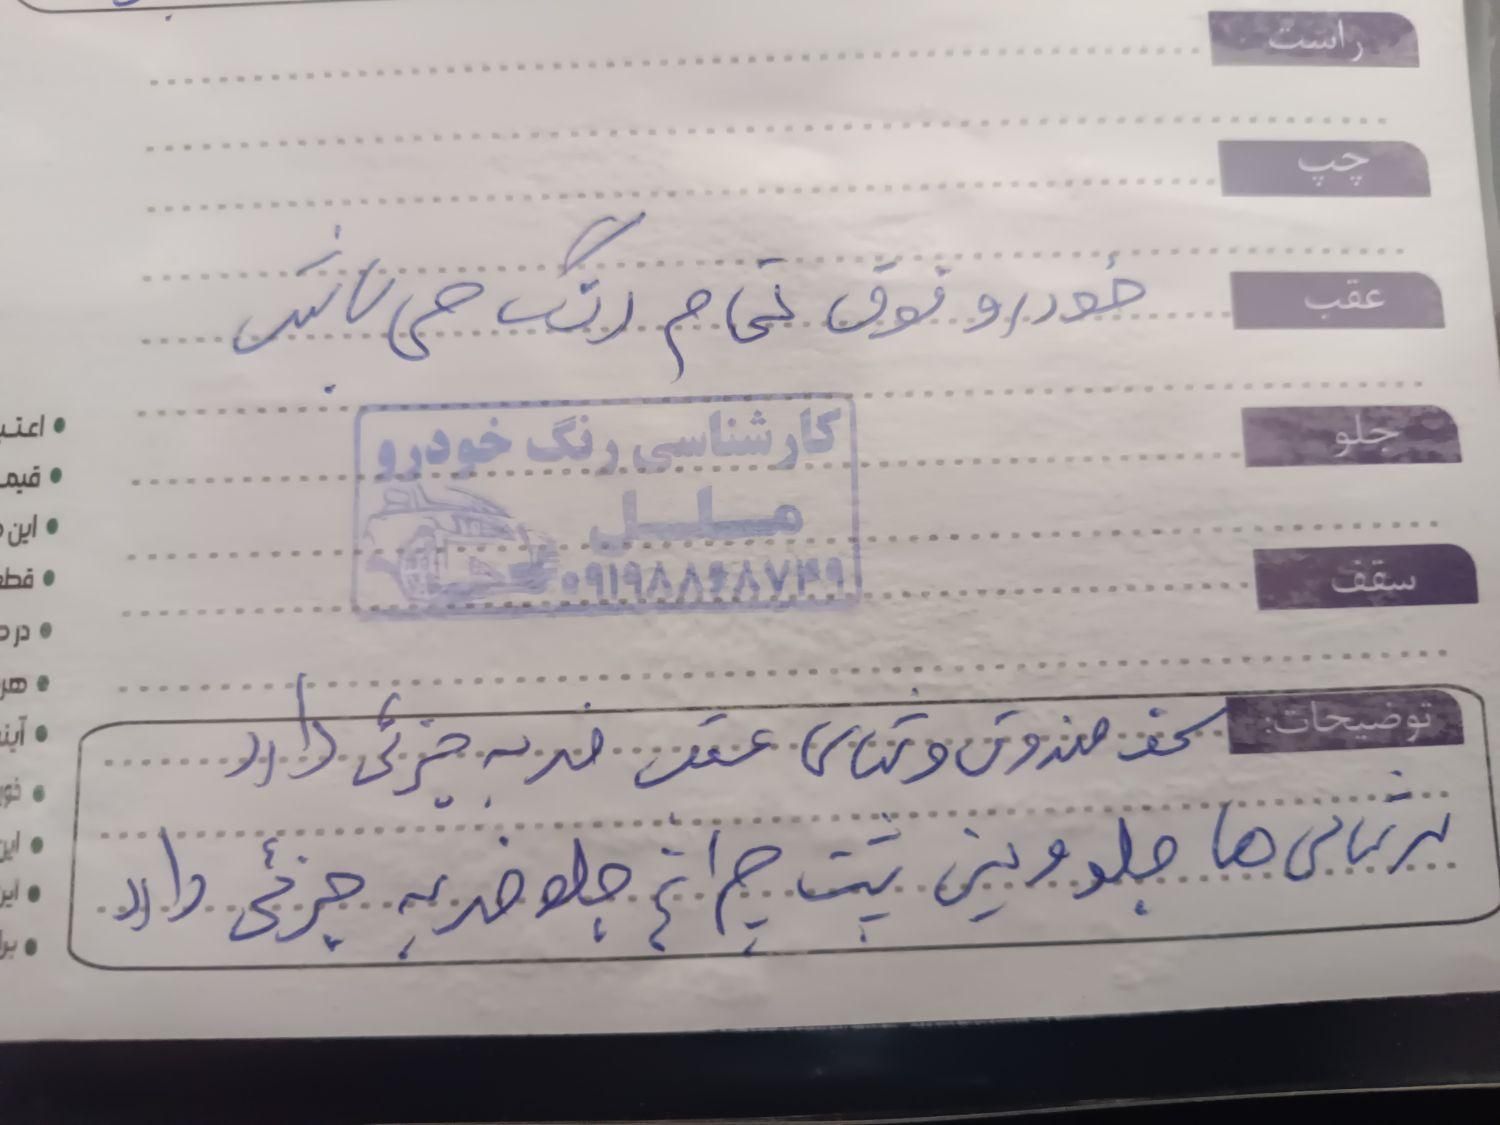 راست
چپ
خودرو فوق تمام رنگ می باشد
عقب
جلو
کارشناسی رنگ خودرو
ملل
سقف
توضیحات:
کف صندوق و عقب ضربه جزئی دارد
جلو و سینی پشت چراغ جلو ضربه جزئی دارد
اعتب
قیمـ
این
قطعـ
در
هر
آینـ
خو
این
این
برا